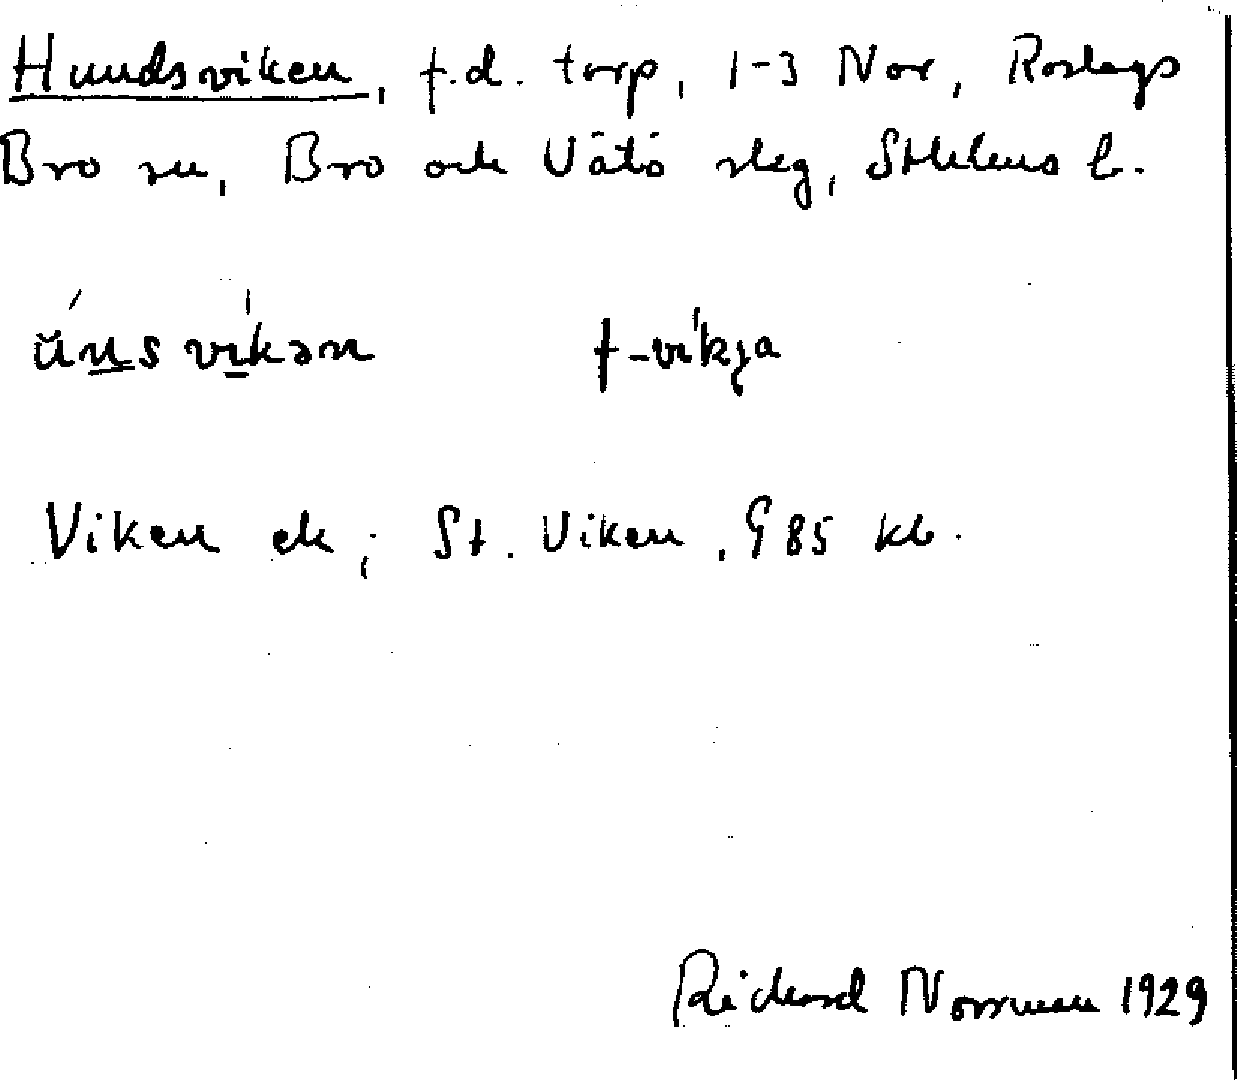 Hundsviken, f.d. torp, 1-3 Nor, Roslags
Bro sn, Bro och Vätö slg, Sthlms l.
ŭ́nsvíkən f -víkja
Viken ek; St. Viken, G 85 kb.
Richard Norrman 1929